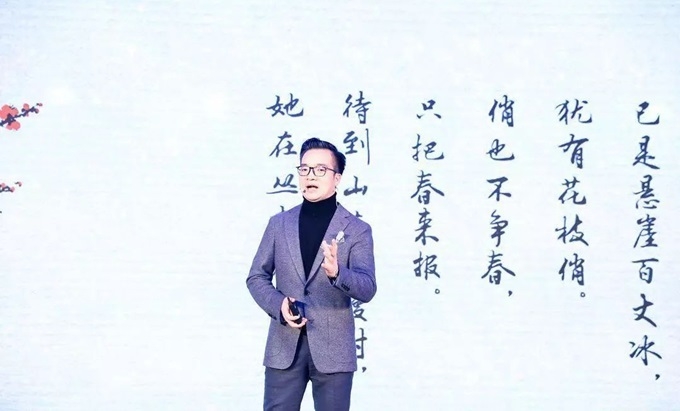 已是悬崖百丈冰，
犹有花枝俏。
俏也不争春，
只把春来报。
待到山时，
她在丛